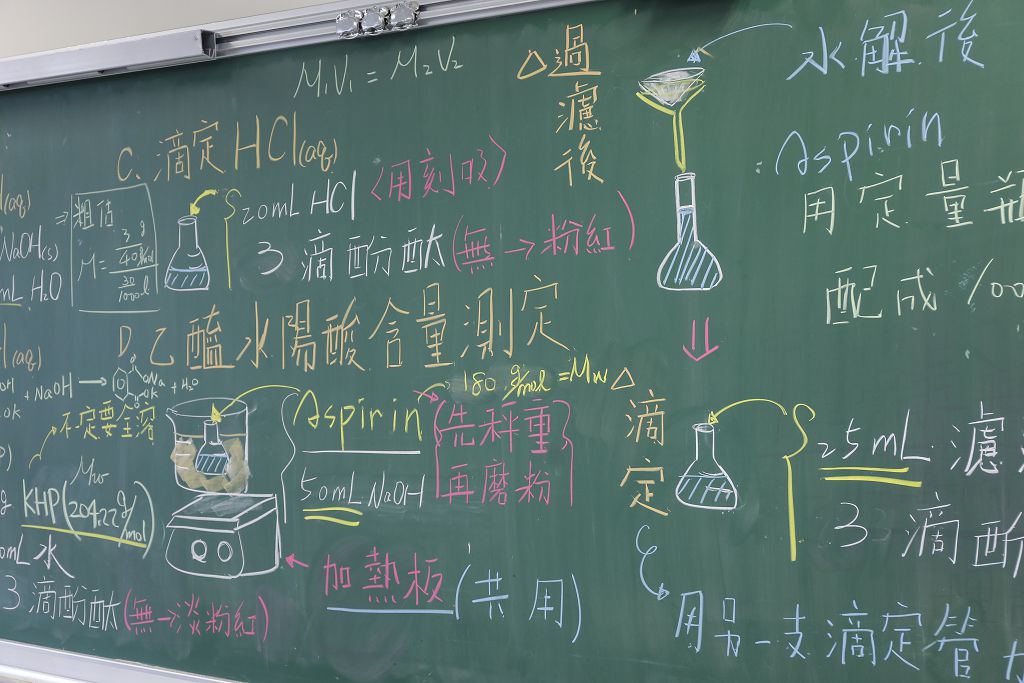 M₁V₁ = M₂V₂
C. 滴定 HCl(aq)
20mL HCl 〈用刻吸〉
3 滴酚酞 (無→粉紅)
(aq)
NaOH(s)
mL H₂O
⇒ 粗估
M = 3 g / 40 g/mol / 30 / 1000 l
D. 乙醯水陽酸含量測定
(aq)
+ NaOH → Na + H₂O
OK
不一定要全溶
Mw
g KHP (204.22 g/mol)
0mL 水
3 滴酚酞 (無→淡粉紅)
Aspirin
180 g/mol = Mw
50mL NaOH
{先秤重
再磨粉}
加熱板 (共用)
△ 過濾後
水解後
Aspirin
用定量瓶
配成 100
⇓
△ 滴定
25mL 濾
3 滴酚
用另一支滴定管